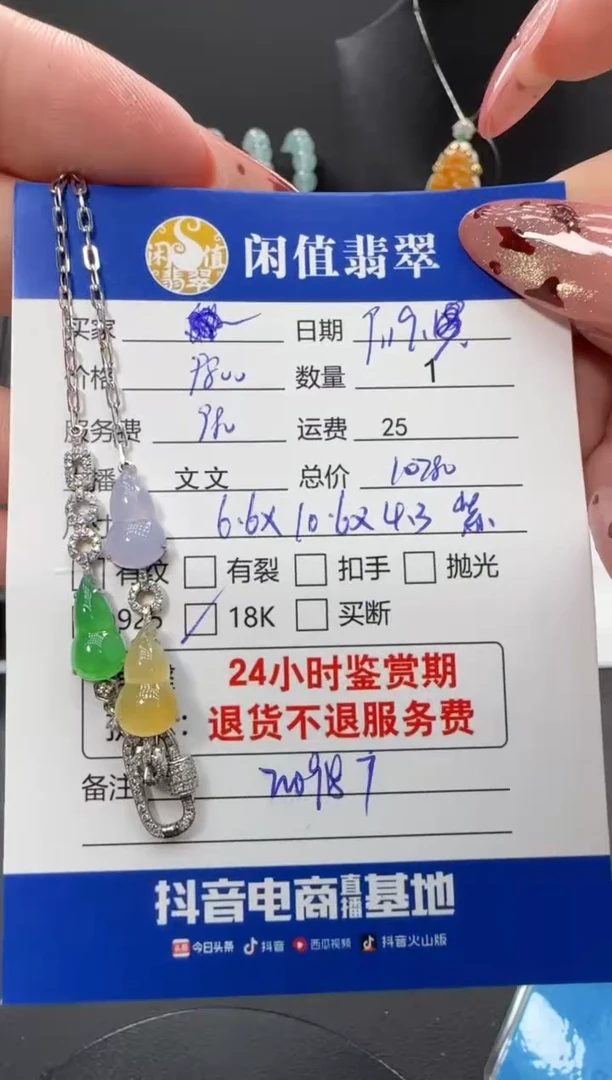 闲值
翡翠
闲值翡翠
买家 日期
价格 9800 数量 1
服务费 运费 25
播 文文 总价 10280
6.6X10.6X4.3 紫
有纹 有裂 扣手 抛光
925 18K 买断
24小时鉴赏期
：退货不退服务费
备注
抖音电商直播基地
头条 今日头条 抖音 西瓜视频 抖音火山版